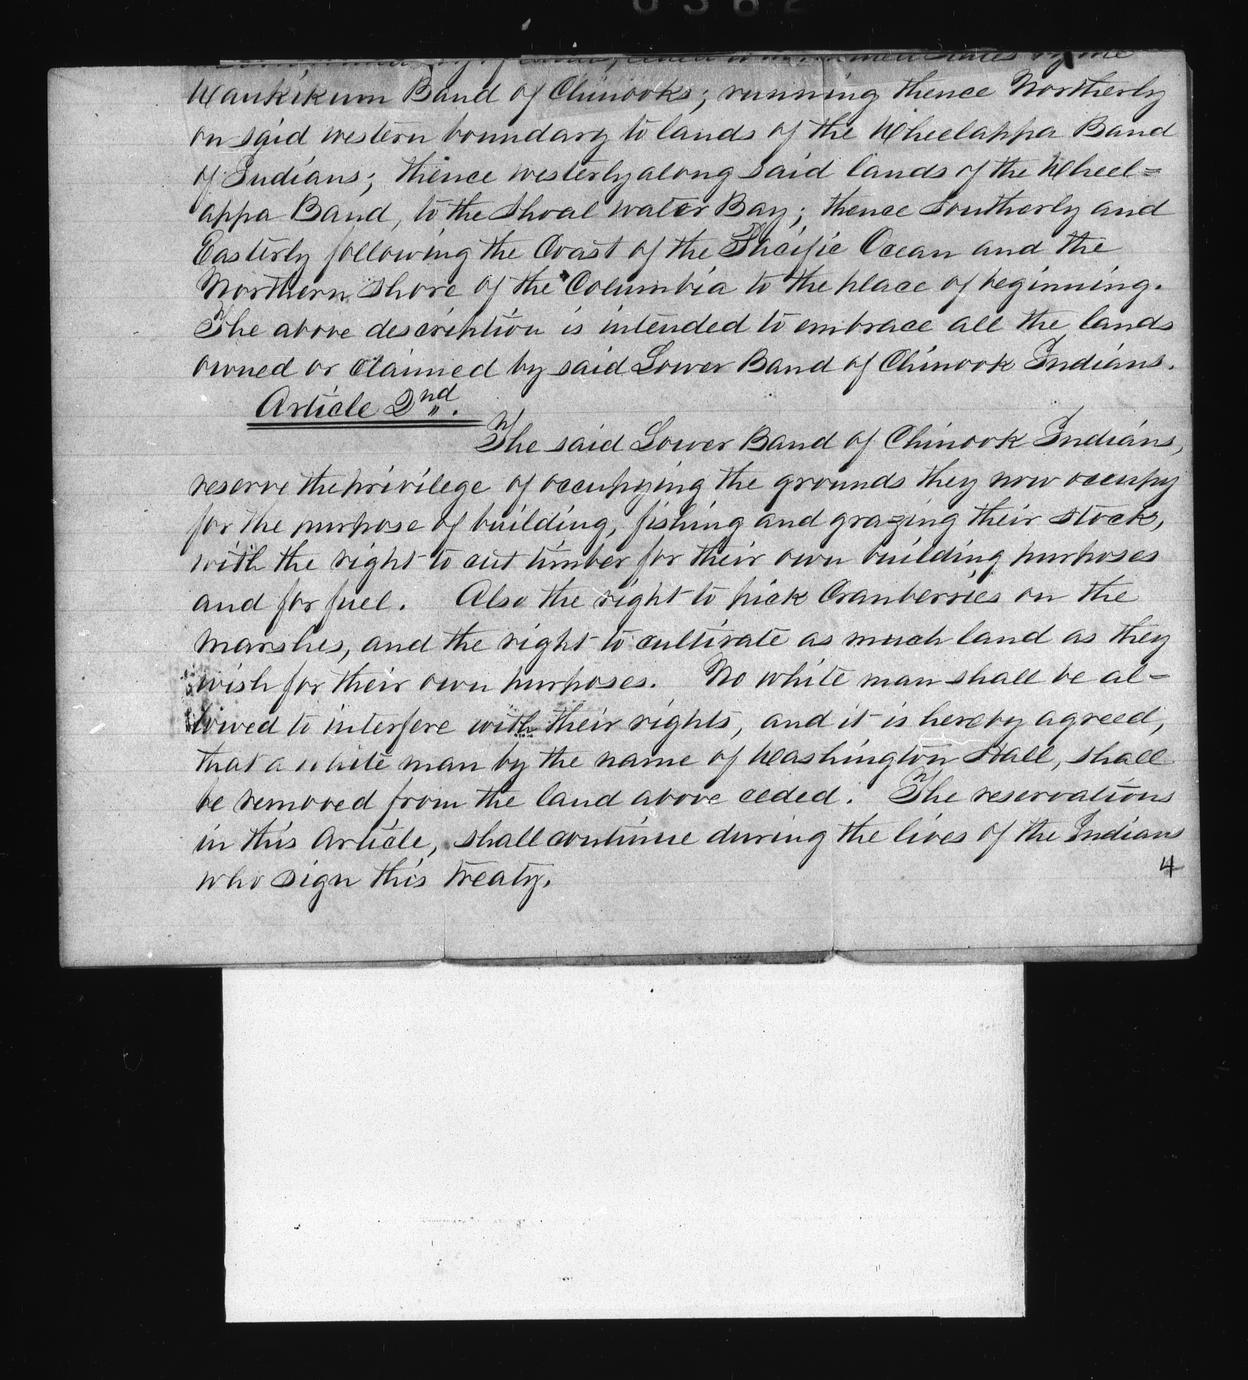 ceded to the United States by the
Waukikum Band of Chinooks; running thence Northerly
on said western boundary to lands of the Wheelappa Band
of Indians; thence westerly along said lands of the Wheel=
appa Band, to the Shoal water Bay; thence Southerly and
Easterly following the Coast of the Pacific Ocean and the
Northern Shore of the Columbia to the place of beginning.
The above description is intended to embrace all the lands
owned or claimed by said Lower Band of Chinook Indians.
Article 2nd.
The said Lower Band of Chinook Indians,
reserve the privilege of occupying the grounds they now occupy
for the purpose of building, fishing and grazing their stock,
with the right to cut timber for their own building purposes
and for fuel. Also the right to pick Cranberries on the
marshes, and the right to cultivate as much land as they
wish for their own purposes. No white man shall be al=
lowed to interfere with their rights, and it is hereby agreed,
that a white man by the name of Washington Hall, shall
be removed from the land above ceded. The reservations
in this Article, shall continue during the lives of the Indians
who sign this treaty.
4